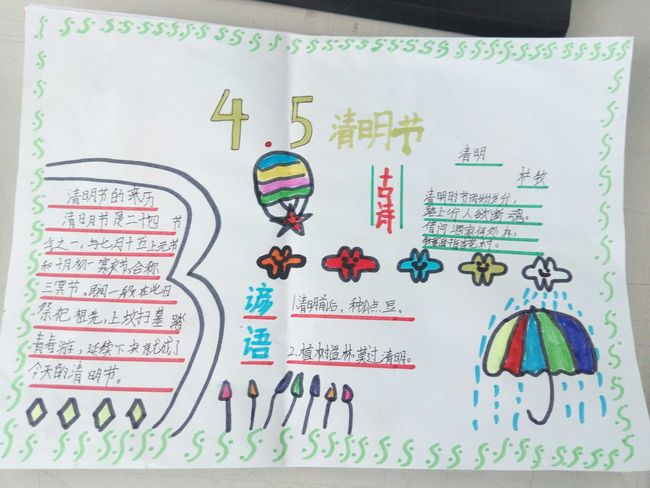 4.5 清明节
清明节的来历
清日月节是二十四 节
令之一，与七月十五上元节
和十月初一寒衣节合称
三冥节。民间一般在此日
祭祀祖先，上坟扫墓 踏
青春游，延续下来形成了
今天的清明节。
古诗
清明
杜牧
清明时节雨纷纷，
路上行人欲断魂。
借问酒家何处有，
谚语
1.清明前后，种瓜点豆。
2.植树造林莫过清明。